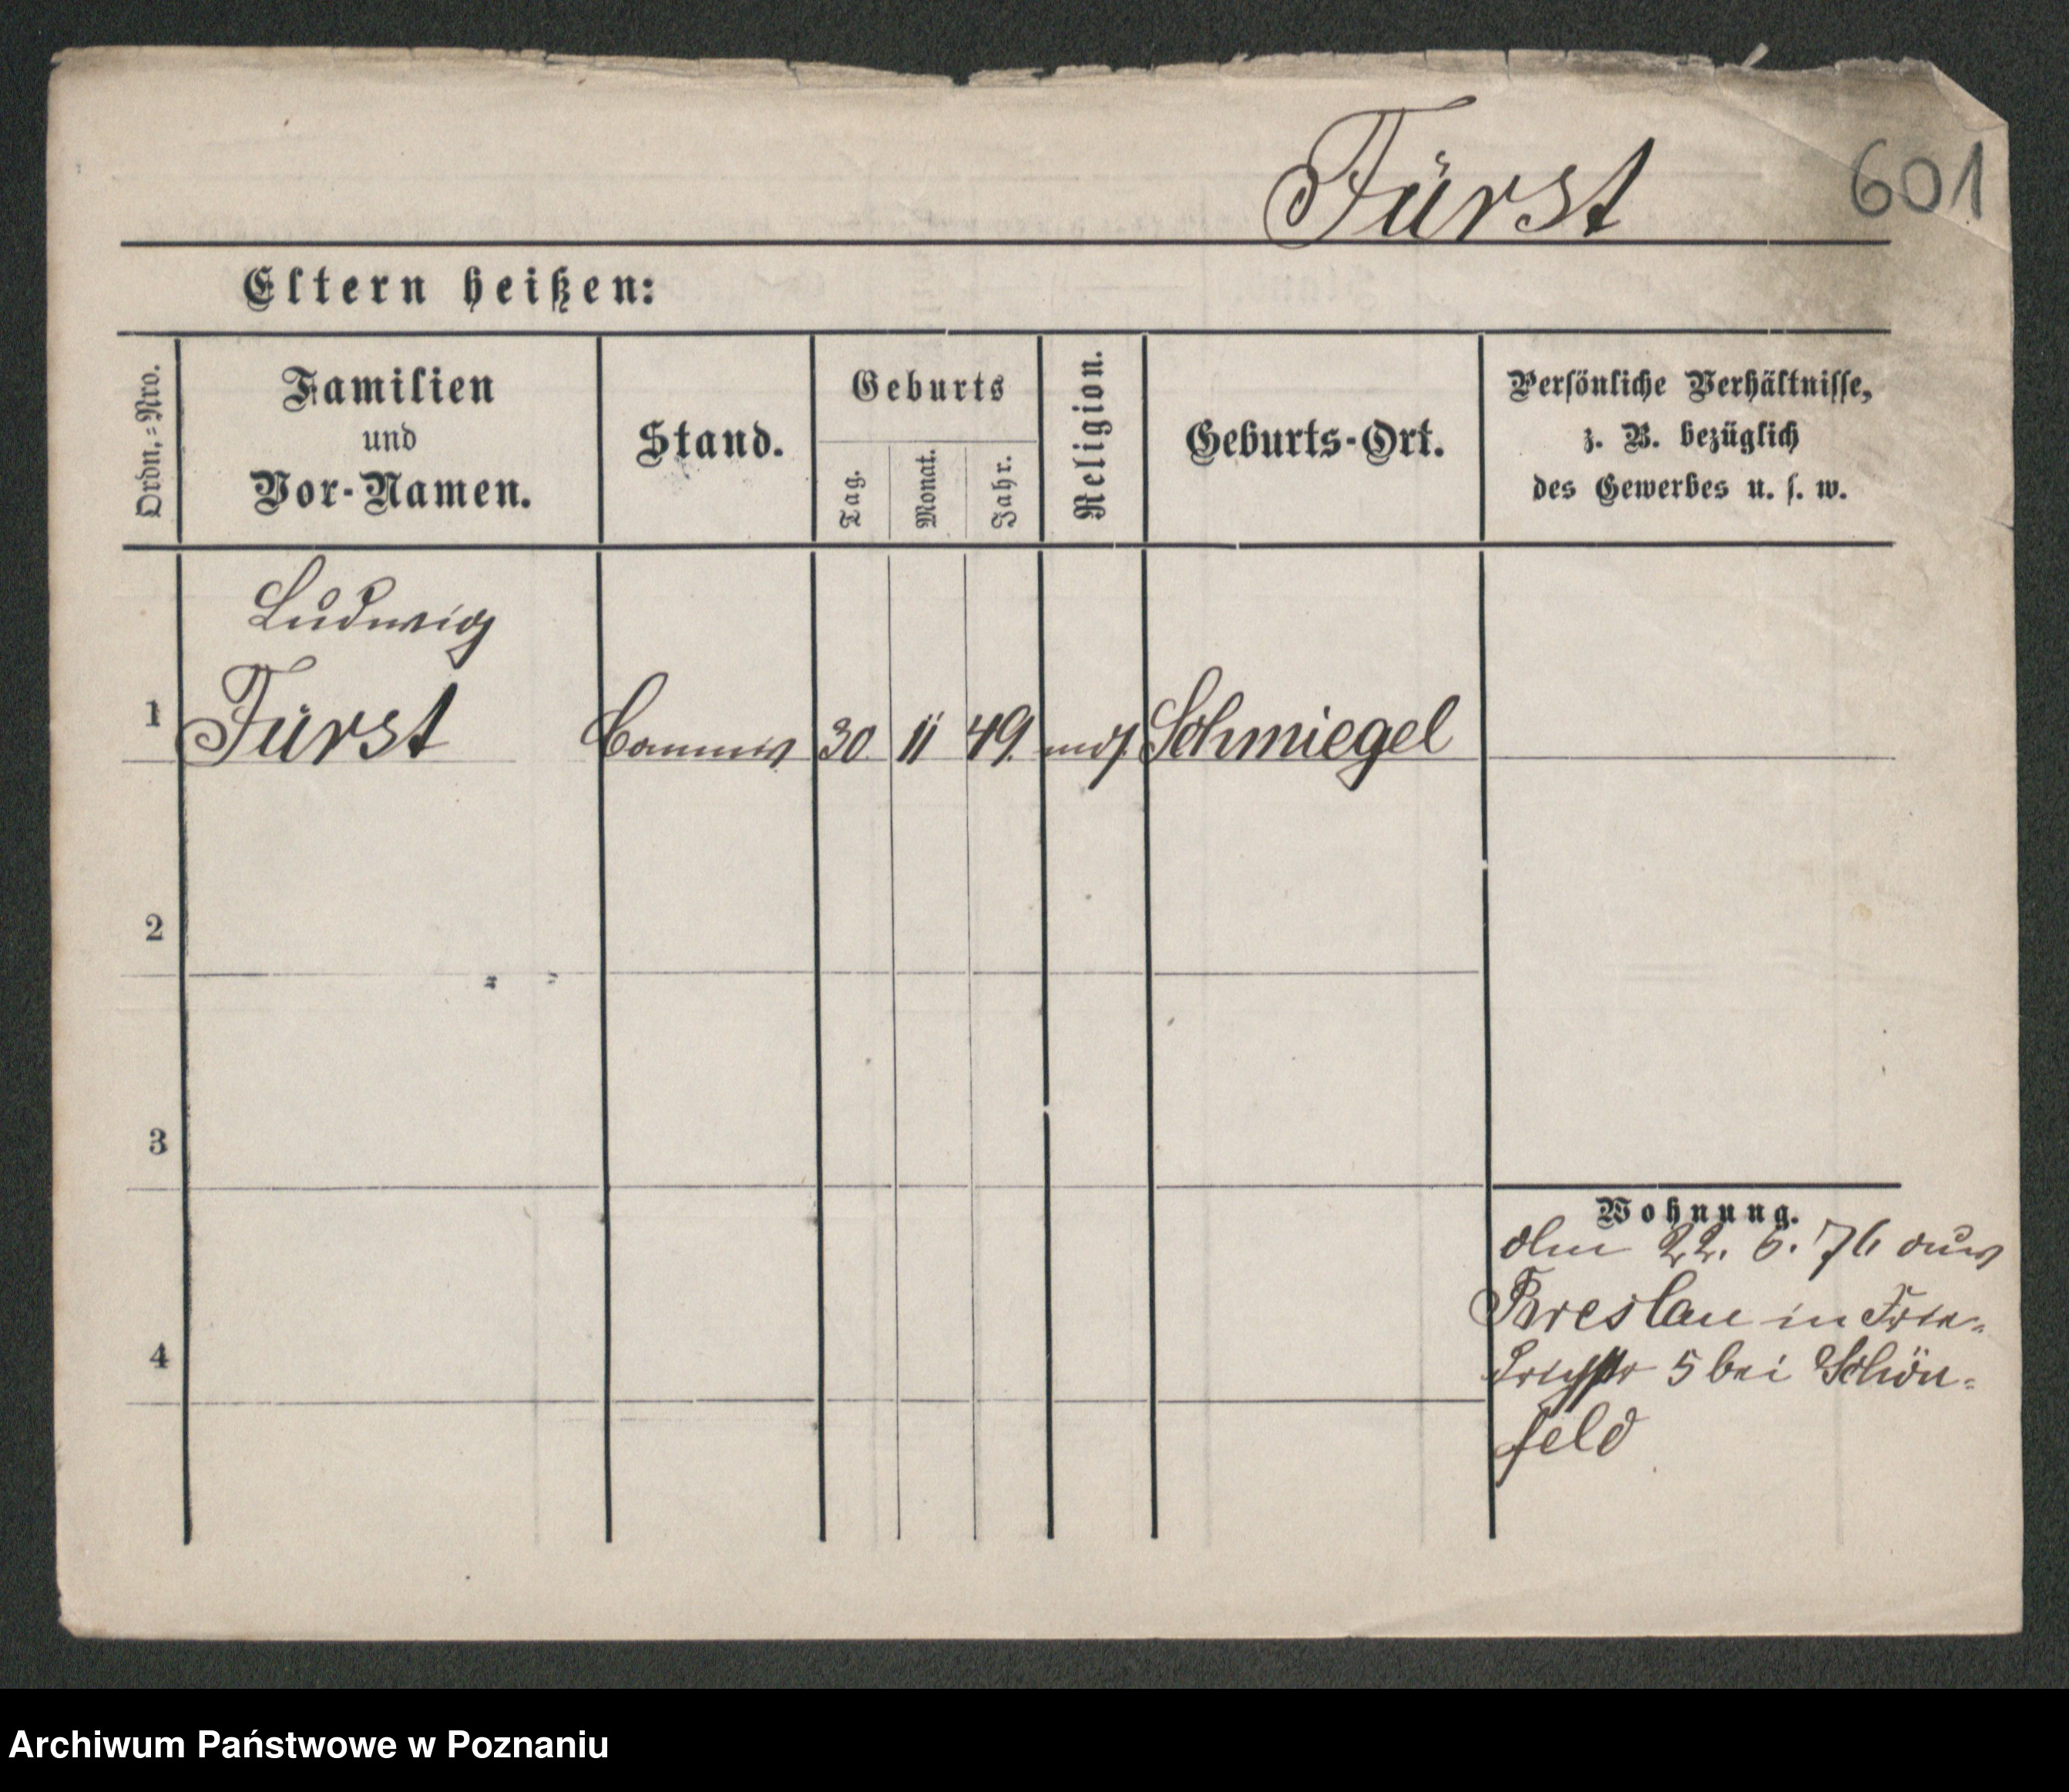 Fürst
601
Eltern heißen:
Ordn.-Nro.
Familien
und
Vor-Namen.
Stand.
Geburts
Tag.
Monat.
Jahr.
Religion.
Geburts-Ort.
Persönliche Verhältnisse,
z. B. bezüglich
des Gewerbes u. s. w.
Ludwig
1 Fürst Commis 30. 11 49. mos. Schmiegel
2
3
Wohnung.
22. 6. 76 aus
Breslau in Frie-
4
drichstr 5 bei Schön-
feld
Archiwum Państwowe w Poznaniu